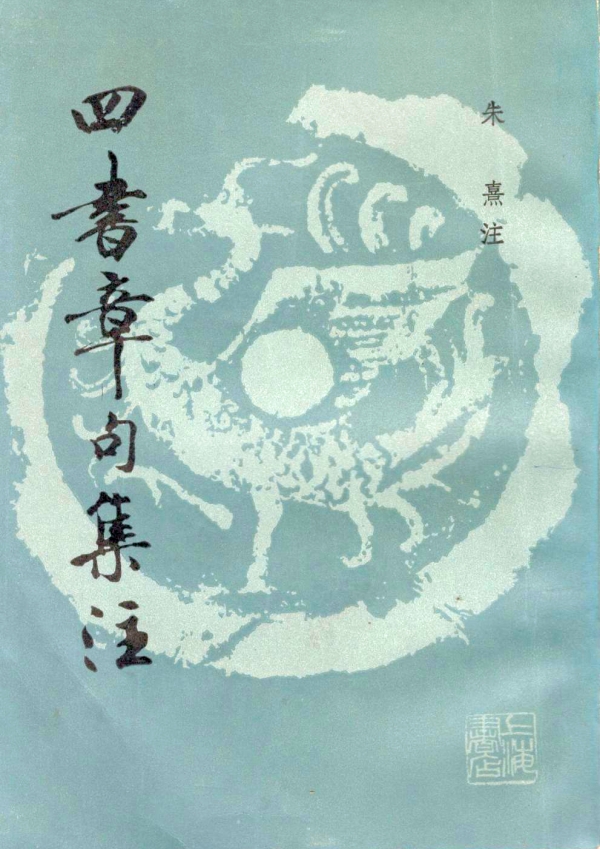 朱熹注
四书章句集注
上海
书店